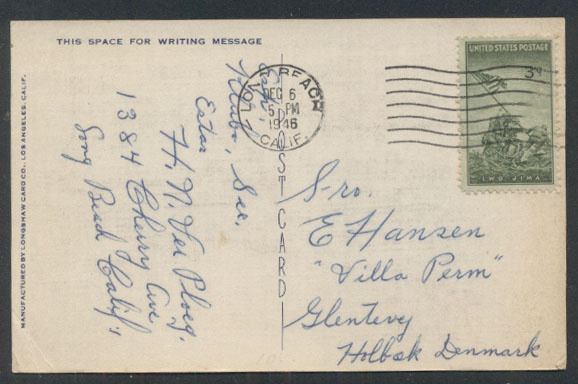 THIS SPACE FOR WRITING MESSAGE
MANUFACTURED BY LONGSHAW CARD CO., LOS ANGELES, CALIF.
POST CARD
LONG BEACH
DEC 6
5 PM
1946
CALIF.
UNITED STATES POSAGE
3¢
IWO JIMA
Klubo, Sec.
H. N. Ver Ploeg.
1384 Cherry Ave
Long Beach Calif,
S-ro.
E Hansen
"Villa Perm"
Glentevej
Holbæk Denmark